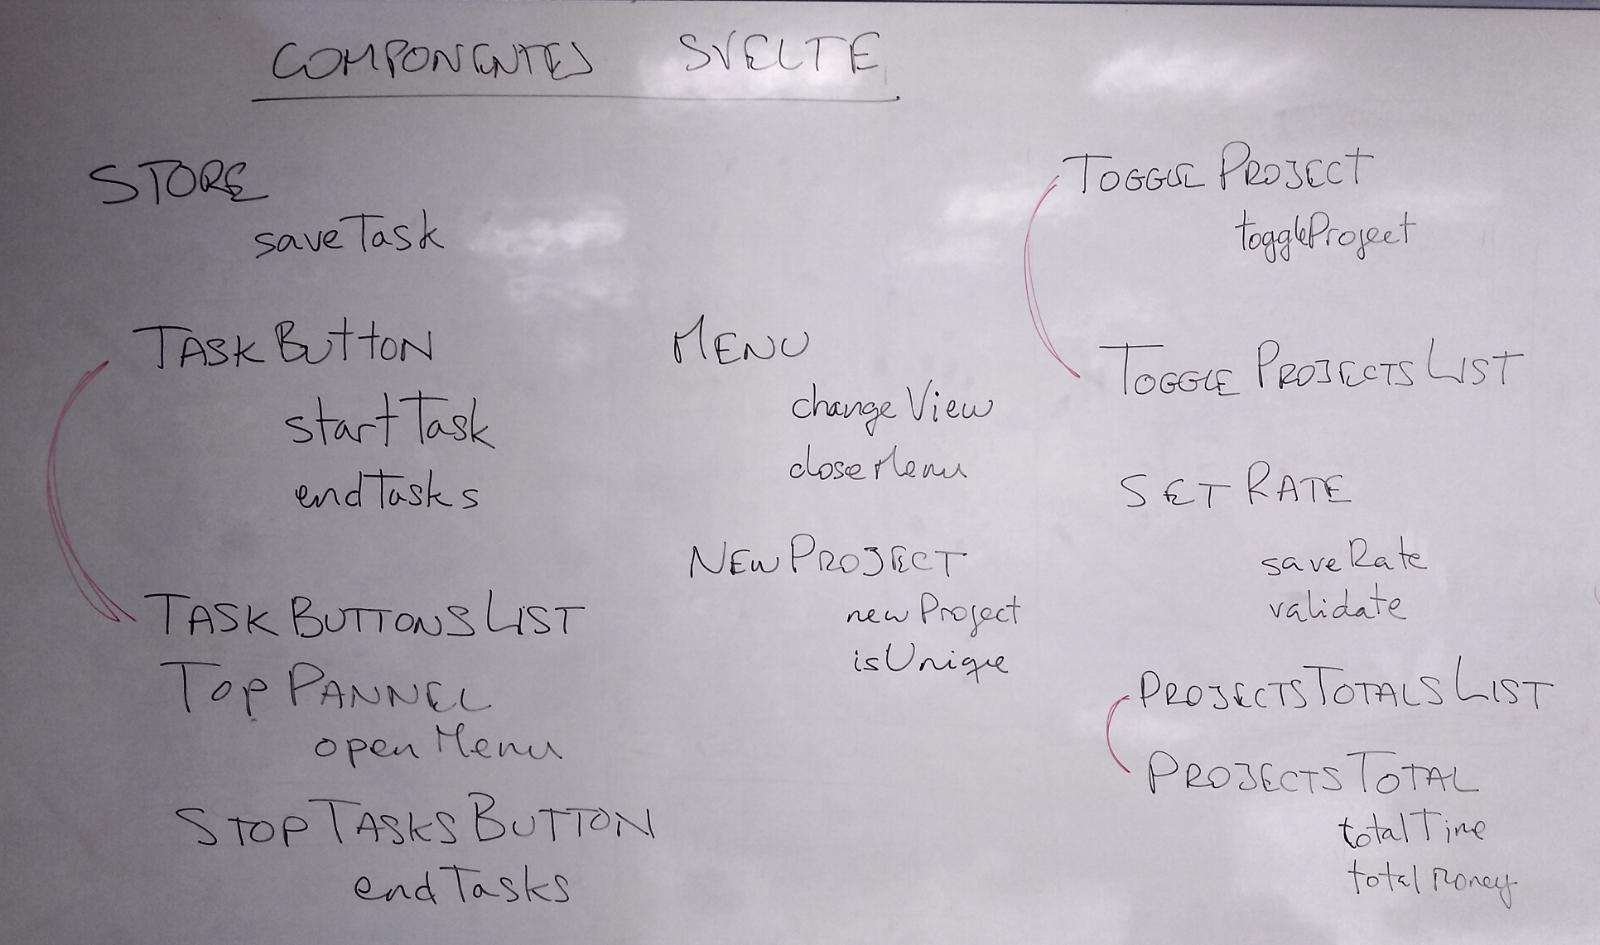 COMPONENTES SVELTE
STORE
saveTask
TASKBUTTON
startTask
endTasks
TASKBUTTONSLIST
TOPPANNEL
openMenu
STOPTASKSBUTTON
endTasks
MENU
changeView
closeMenu
NEWPROJECT
newProject
isUnique
TOGGLEPROJECT
toggleProject
TOGGLEPROJECTSLIST
SETRATE
saveRate
validate
PROJECTSTOTALSLIST
PROJECTSTOTAL
totalTime
totalMoney